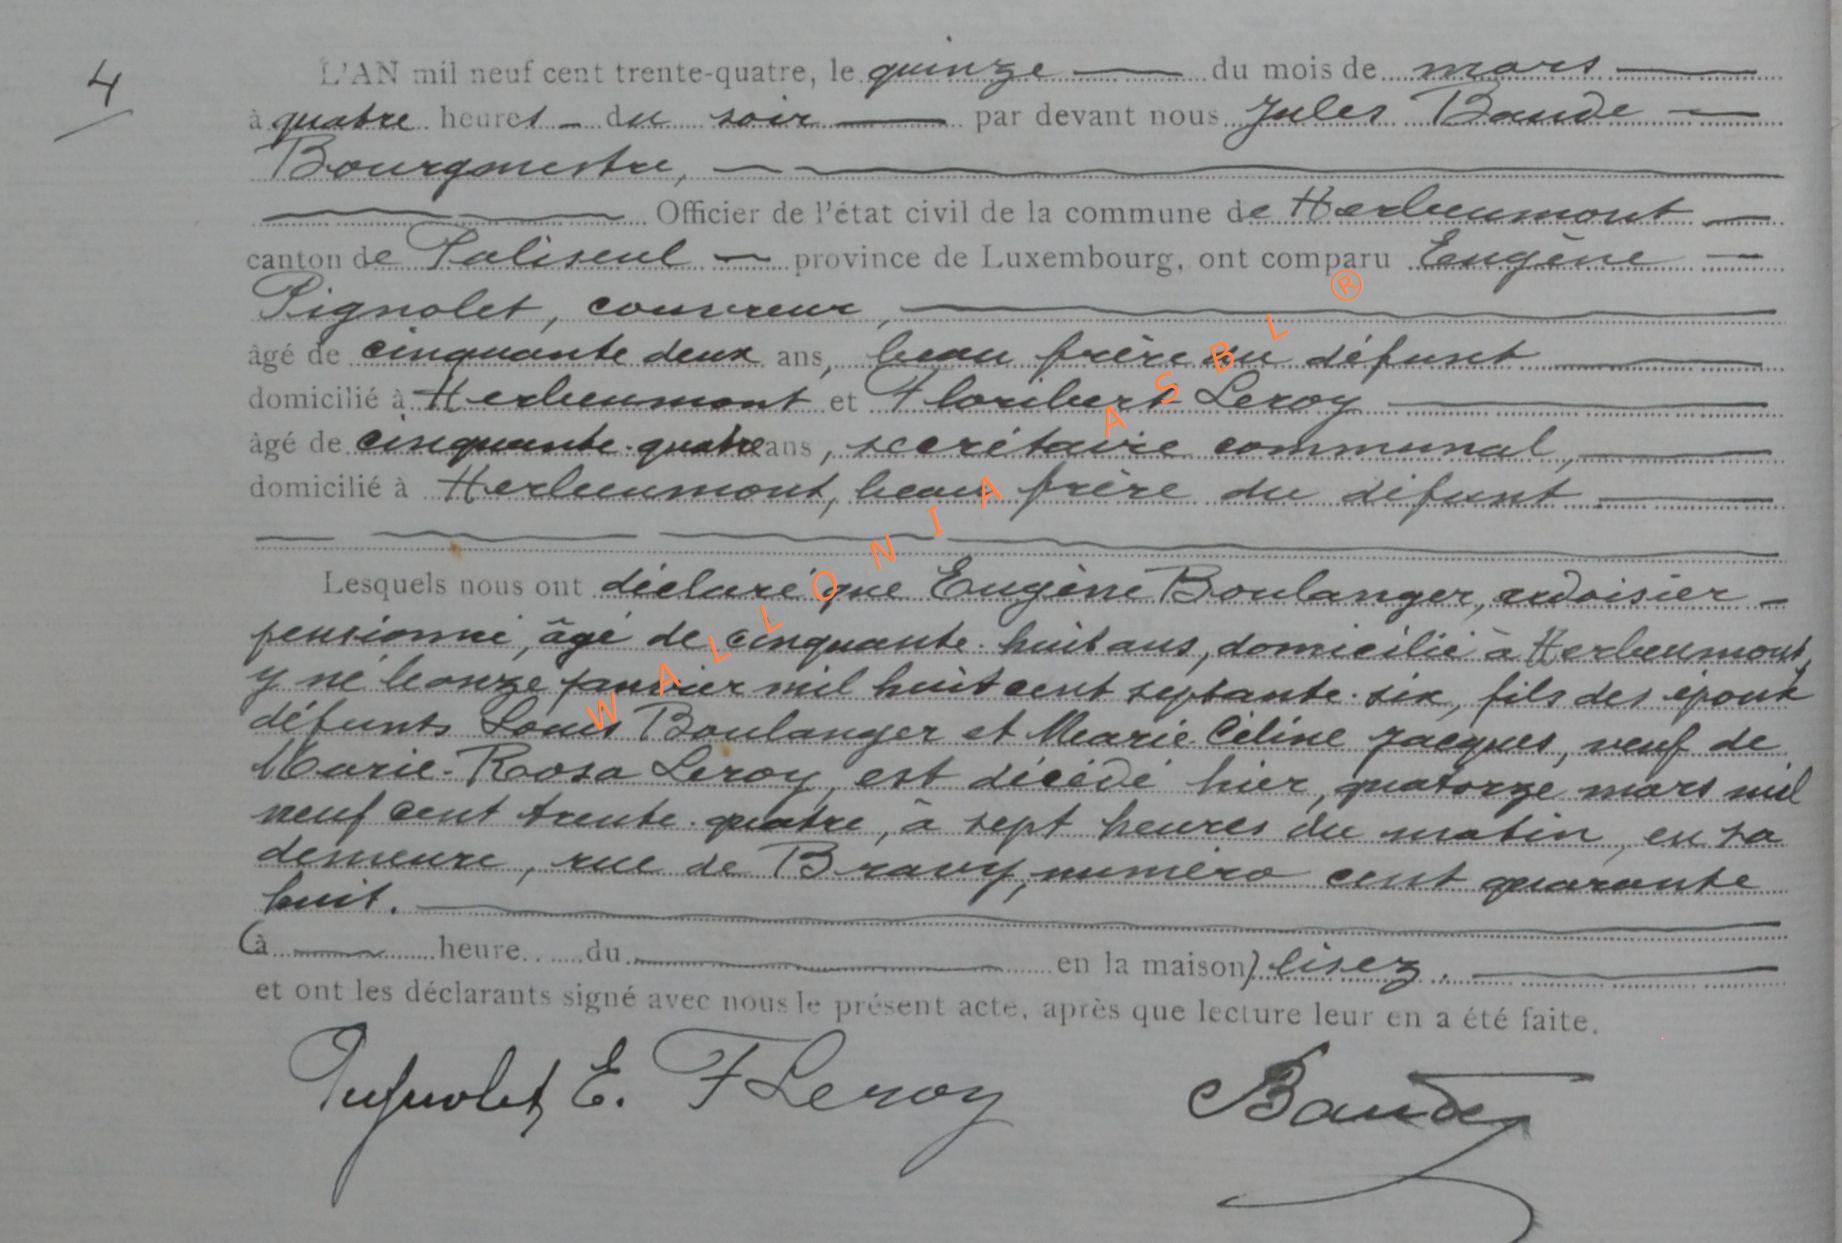 4
L'AN mil neuf cent trente-quatre, le quinze du mois de mars
à quatre heures du soir par devant nous Jules Baude
Bourgmestre,
Officier de l'état civil de la commune de Herbeumont
canton de Paliseul province de Luxembourg, ont comparu Eugène
Pignolet, couvreur,
âgé de cinquante deux ans, beau frère du défunt
domicilié à Herbeumont et Floribert Leroy
âgé de cinquante-quatre ans, secrétaire communal,
domicilié à Herbeumont, beau frère du défunt
Lesquels nous ont déclaré que Eugène Boulanger, ardoisier
pensionné, âgé de cinquante-huit ans, domicilié à Herbeumont,
y né le onze janvier mil huit cent septante-six, fils des époux
défunts Louis Boulanger et Marie Céline Jacques, veuf de
Marie-Rosa Leroy, est décédé hier, quatorze mars mil
neuf cent trente-quatre, à sept heures du matin, en sa
demeure, rue de Bravy, numéro cent quarante
huit.
(à heure du en la maison) lisez.
et ont les déclarants signé avec nous le présent acte, après que lecture leur en a été faite.
Pignolet E. F Leroy Baude
WALLONIA ASBL ®